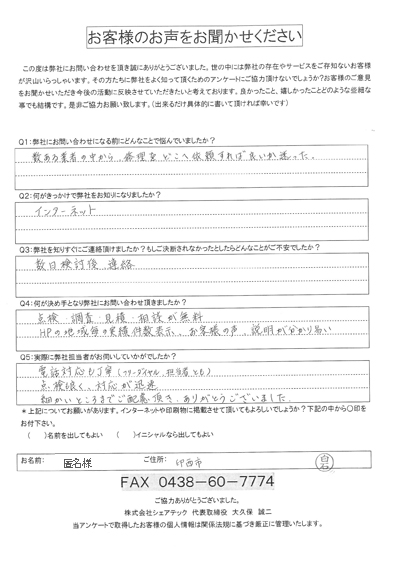 お客様のお声をお聞かせください
この度は弊社にお問い合わせを頂き誠にありがとうございました。世の中には弊社の存在やサービスをご存知ないお客様
が沢山いらっしゃいます。その方たちに弊社をよく知って頂くためのアンケートにご協力頂けないでしょうか？お客様のご意見
をお聞かせいただき今後の活動に反映させていただきたいと考えております。良かったこと、嬉しかったことどのような些細な
事でも結構です。是非ご協力お願い致します。（出来るだけ具体的に書いて頂ければ幸いです）
Q1：弊社にお問い合わせになる前にどんなことで悩んでいましたか？
数ある業者の中から、修理をどこへ依頼すれば良いか迷った。
Q2：何がきっかけで弊社をお知りになりましたか？
インターネット
Q3：弊社を知りすぐにご連絡頂けましたか？もしご決断されなかったとしたらどんなことがご不安でしたか？
数日検討後 連絡
Q4：何が決め手となり弊社にお問い合わせ頂きましたか？
点検・調査・見積・相談が無料
HPの地域毎の実績件数表示、お客様の声、説明が分かり易い
Q5：実際に弊社担当者がお伺いしていかがでしたか？
電話対応も丁寧（フリーダイヤル、担当者とも）
点検良く、対応が迅速
細かいところまでご配慮頂き、ありがとうございました。
＊上記についてお願いがあります。インターネットや印刷物に掲載させて頂いてもよろしいでしょうか？下記の中から○印を
お付下さい。
（　　）名前を出してもよい　（　　）イニシャルなら出してもよい
お名前： 匿名様　ご住所： 印西市　白石
FAX 0438-60-7774
ご協力ありがとうございました。
株式会社シェアテック 代表取締役 大久保 誠二
当アンケートで取得したお客様の個人情報は関係法規に基づき厳正に管理いたします。